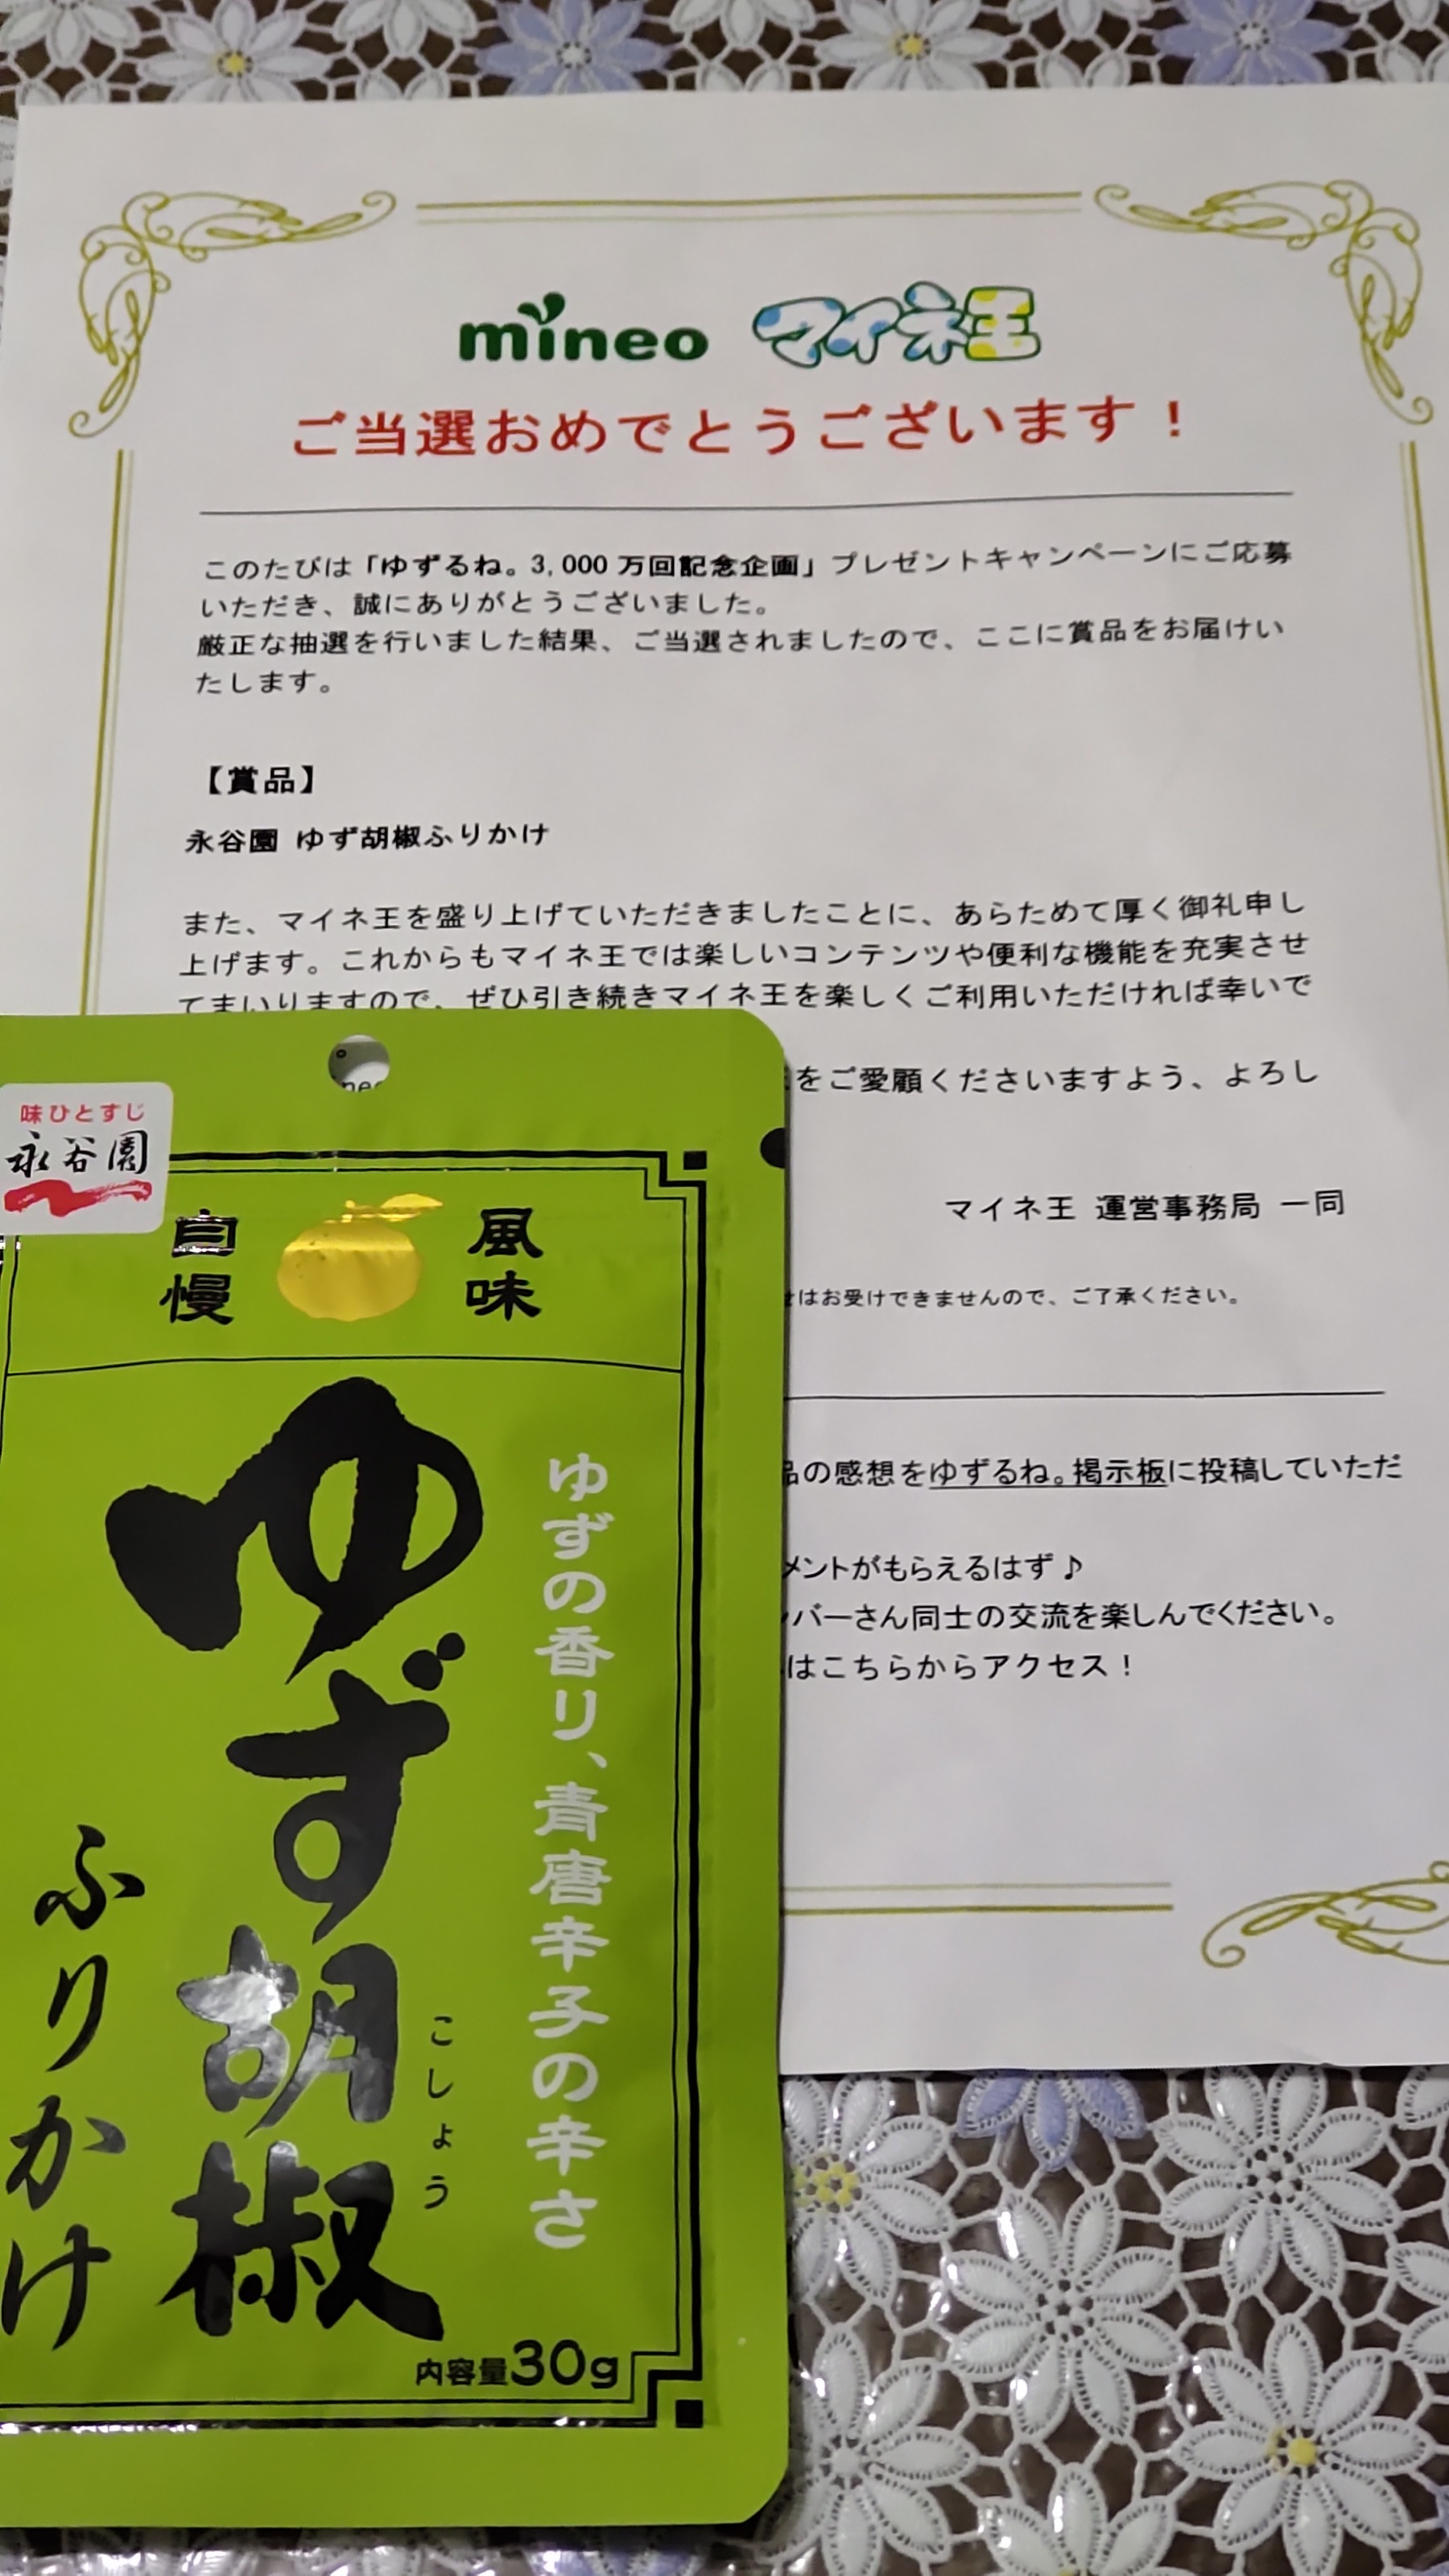 mineo マイネ王
ご当選おめでとうございます！
このたびは「ゆずるね。3,000万回記念企画」プレゼントキャンペーンにご応募
いただき、誠にありがとうございました。
厳正な抽選を行いました結果、ご当選されましたので、ここに賞品をお届けい
たします。
【賞品】
永谷園 ゆず胡椒ふりかけ
また、マイネ王を盛り上げていただきましたことに、あらためて厚く御礼申し
上げます。これからもマイネ王では楽しいコンテンツや便利な機能を充実させ
てまいりますので、ぜひ引き続きマイネ王を楽しくご利用いただければ幸いで
をご愛顧くださいますよう、よろし
マイネ王 運営事務局 一同
はお受けできませんので、ご了承ください。
品の感想をゆずるね。掲示板に投稿していただ
メントがもらえるはず♪
バーさん同士の交流を楽しんでください。
はこちらからアクセス！
味ひとすじ
永谷園
風味
自慢
ゆずの香り、青唐辛子の辛さ
ゆず胡椒
こしょう
ふりかけ
内容量30g